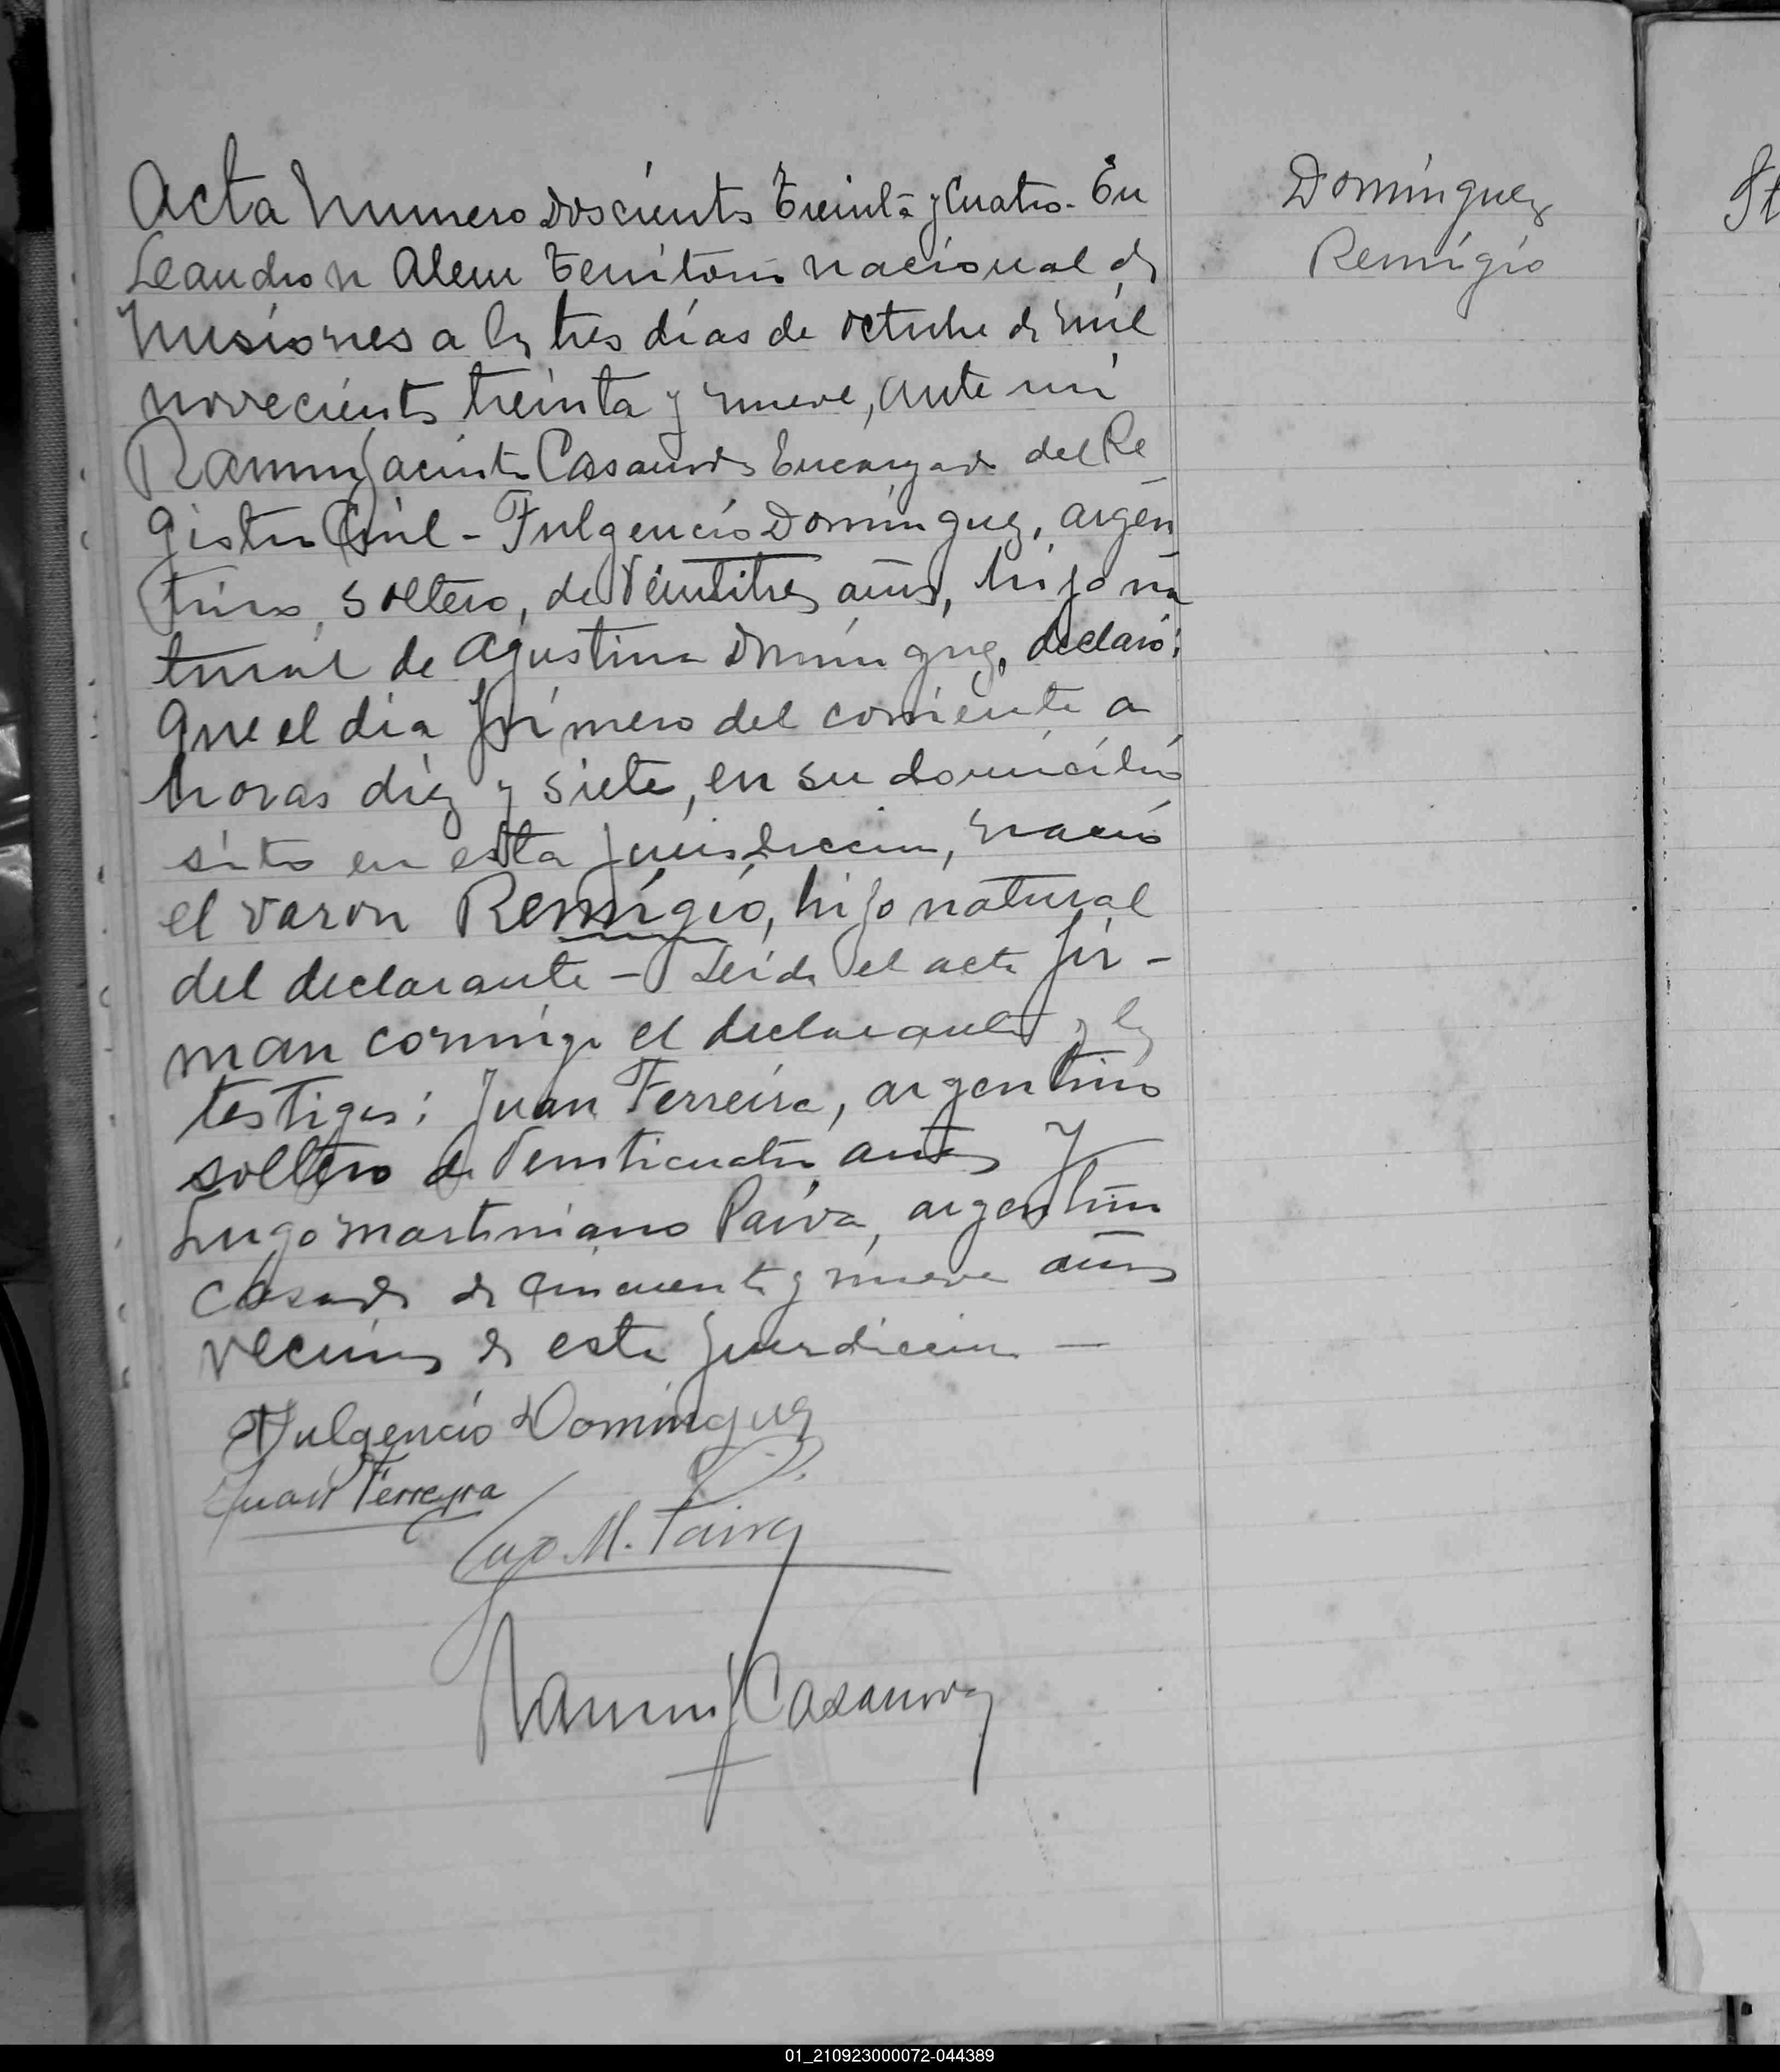 Acta Numero Doscientos Treinta y Cuatro - En
Leandro N Alem Territorio nacional de
Misiones a los tres días de octubre de mil
novecientos treinta y nueve, ante mi
Ramon Jacinto Casanova Encargado del Re
gistro Civil - Fulgencio Domínguez, argen
tino, soltero, de Veintitres años, hijo na
tural de Agustina Domínguez, declaró:
Que el día primero del corriente a
horas diez y siete, en su domicilio
sito en esta jurisdiccion, nació
el varon Remigio, hijo natural
del declarante - Leída el acta fir-
man conmigo el declarante y los
testigos: Juan Ferreira, argentino
soltero de Veinticuatro años y
Lugo Martiniano Paiva, argentino
casado de cincuenta y nueve años
vecinos de esta jurisdiccion —
Fulgencio Domínguez
Juan Ferreyra
Lugo M. Paiva
Ramon J Casanova
Domínguez
Remigio
St
01_210923000072-044389